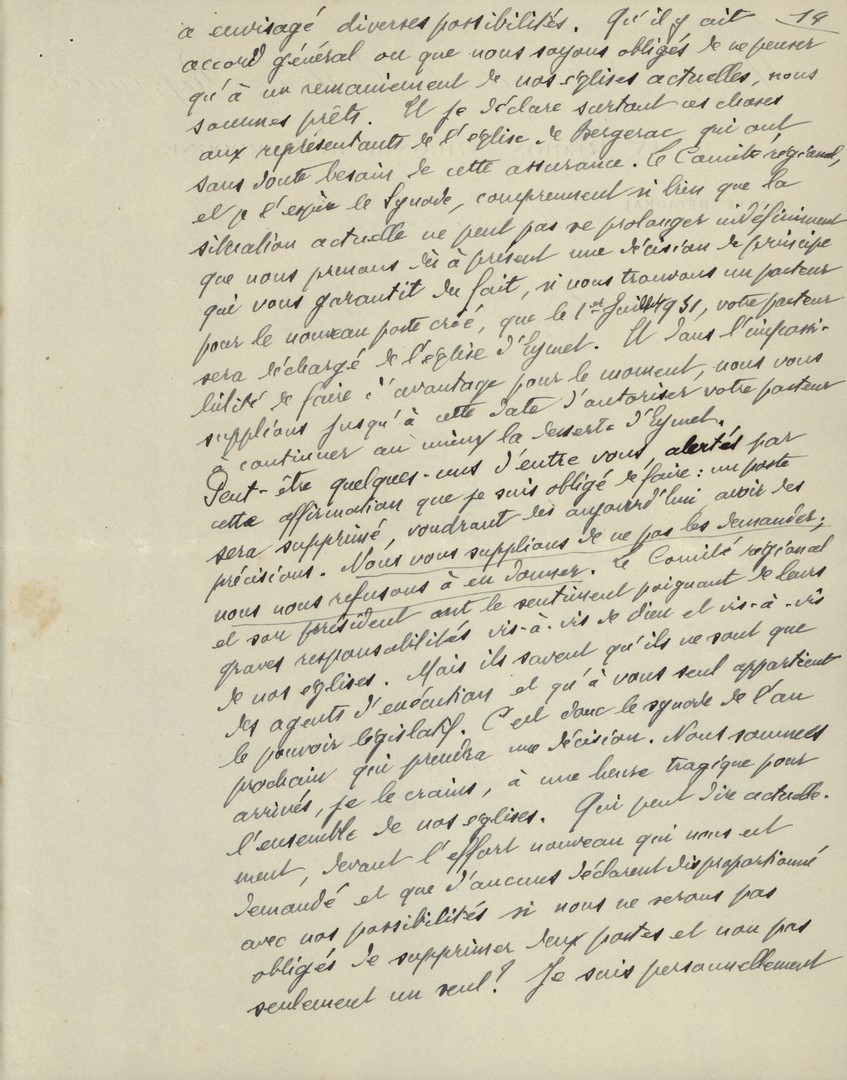 14
a envisagé diverses possibilités. Qu'il y ait
accord général ou que nous soyons obligés de ne penser
qu'à un remaniement de nos églises actuelles, nous
sommes prêts. Et je déclare surtout ces choses
aux représentants de l'église de Bergerac, qui ont
sans doute besoin de cette assurance. Le Comité régional,
et je l'espère le Synode, comprennent si bien que la
situation actuelle ne peut pas se prolonger indéfiniment
que nous prenons dès à présent une décision de principe
qui vous garantit du fait, si nous trouvons un pasteur
pour le nouveau poste créé, que le 1er Juillet 1931, votre pasteur
sera déchargé de l'église d'Eymet. Et dans l'impossi-
bilité de faire d'avantage pour le moment, nous vous
supplions jusqu'à cette date d'autoriser votre pasteur
à continuer au mieux la desserte d'Eymet.
Peut-être quelques-uns d'entre vous, alertés par
cette affirmation que je suis obligé de faire : un poste
sera supprimé, voudront dès aujourd'hui avoir des
précisions. Nous vous supplions de ne pas les demander ;
nous nous refusons à en donner. Le Comité régional
et son président ont le sentiment poignant de leurs
graves responsabilités vis-à-vis de Dieu et vis-à-vis
de nos églises. Mais ils savent qu'ils ne sont que
des agents d'exécution et qu'à vous seul appartient
le pouvoir législatif. C'est donc le synode de l'an
prochain qui prendra une décision. Nous sommes
arrivés, je le crains, à une heure tragique pour
l'ensemble de nos églises. Qui peut dire actuelle-
ment, devant l'effort nouveau qui nous est
demandé et que d'aucuns déclarent disproportionné
avec nos possibilités si nous ne serons pas
obligés de supprimer deux postes et non pas
seulement un seul ? Je suis personnellement